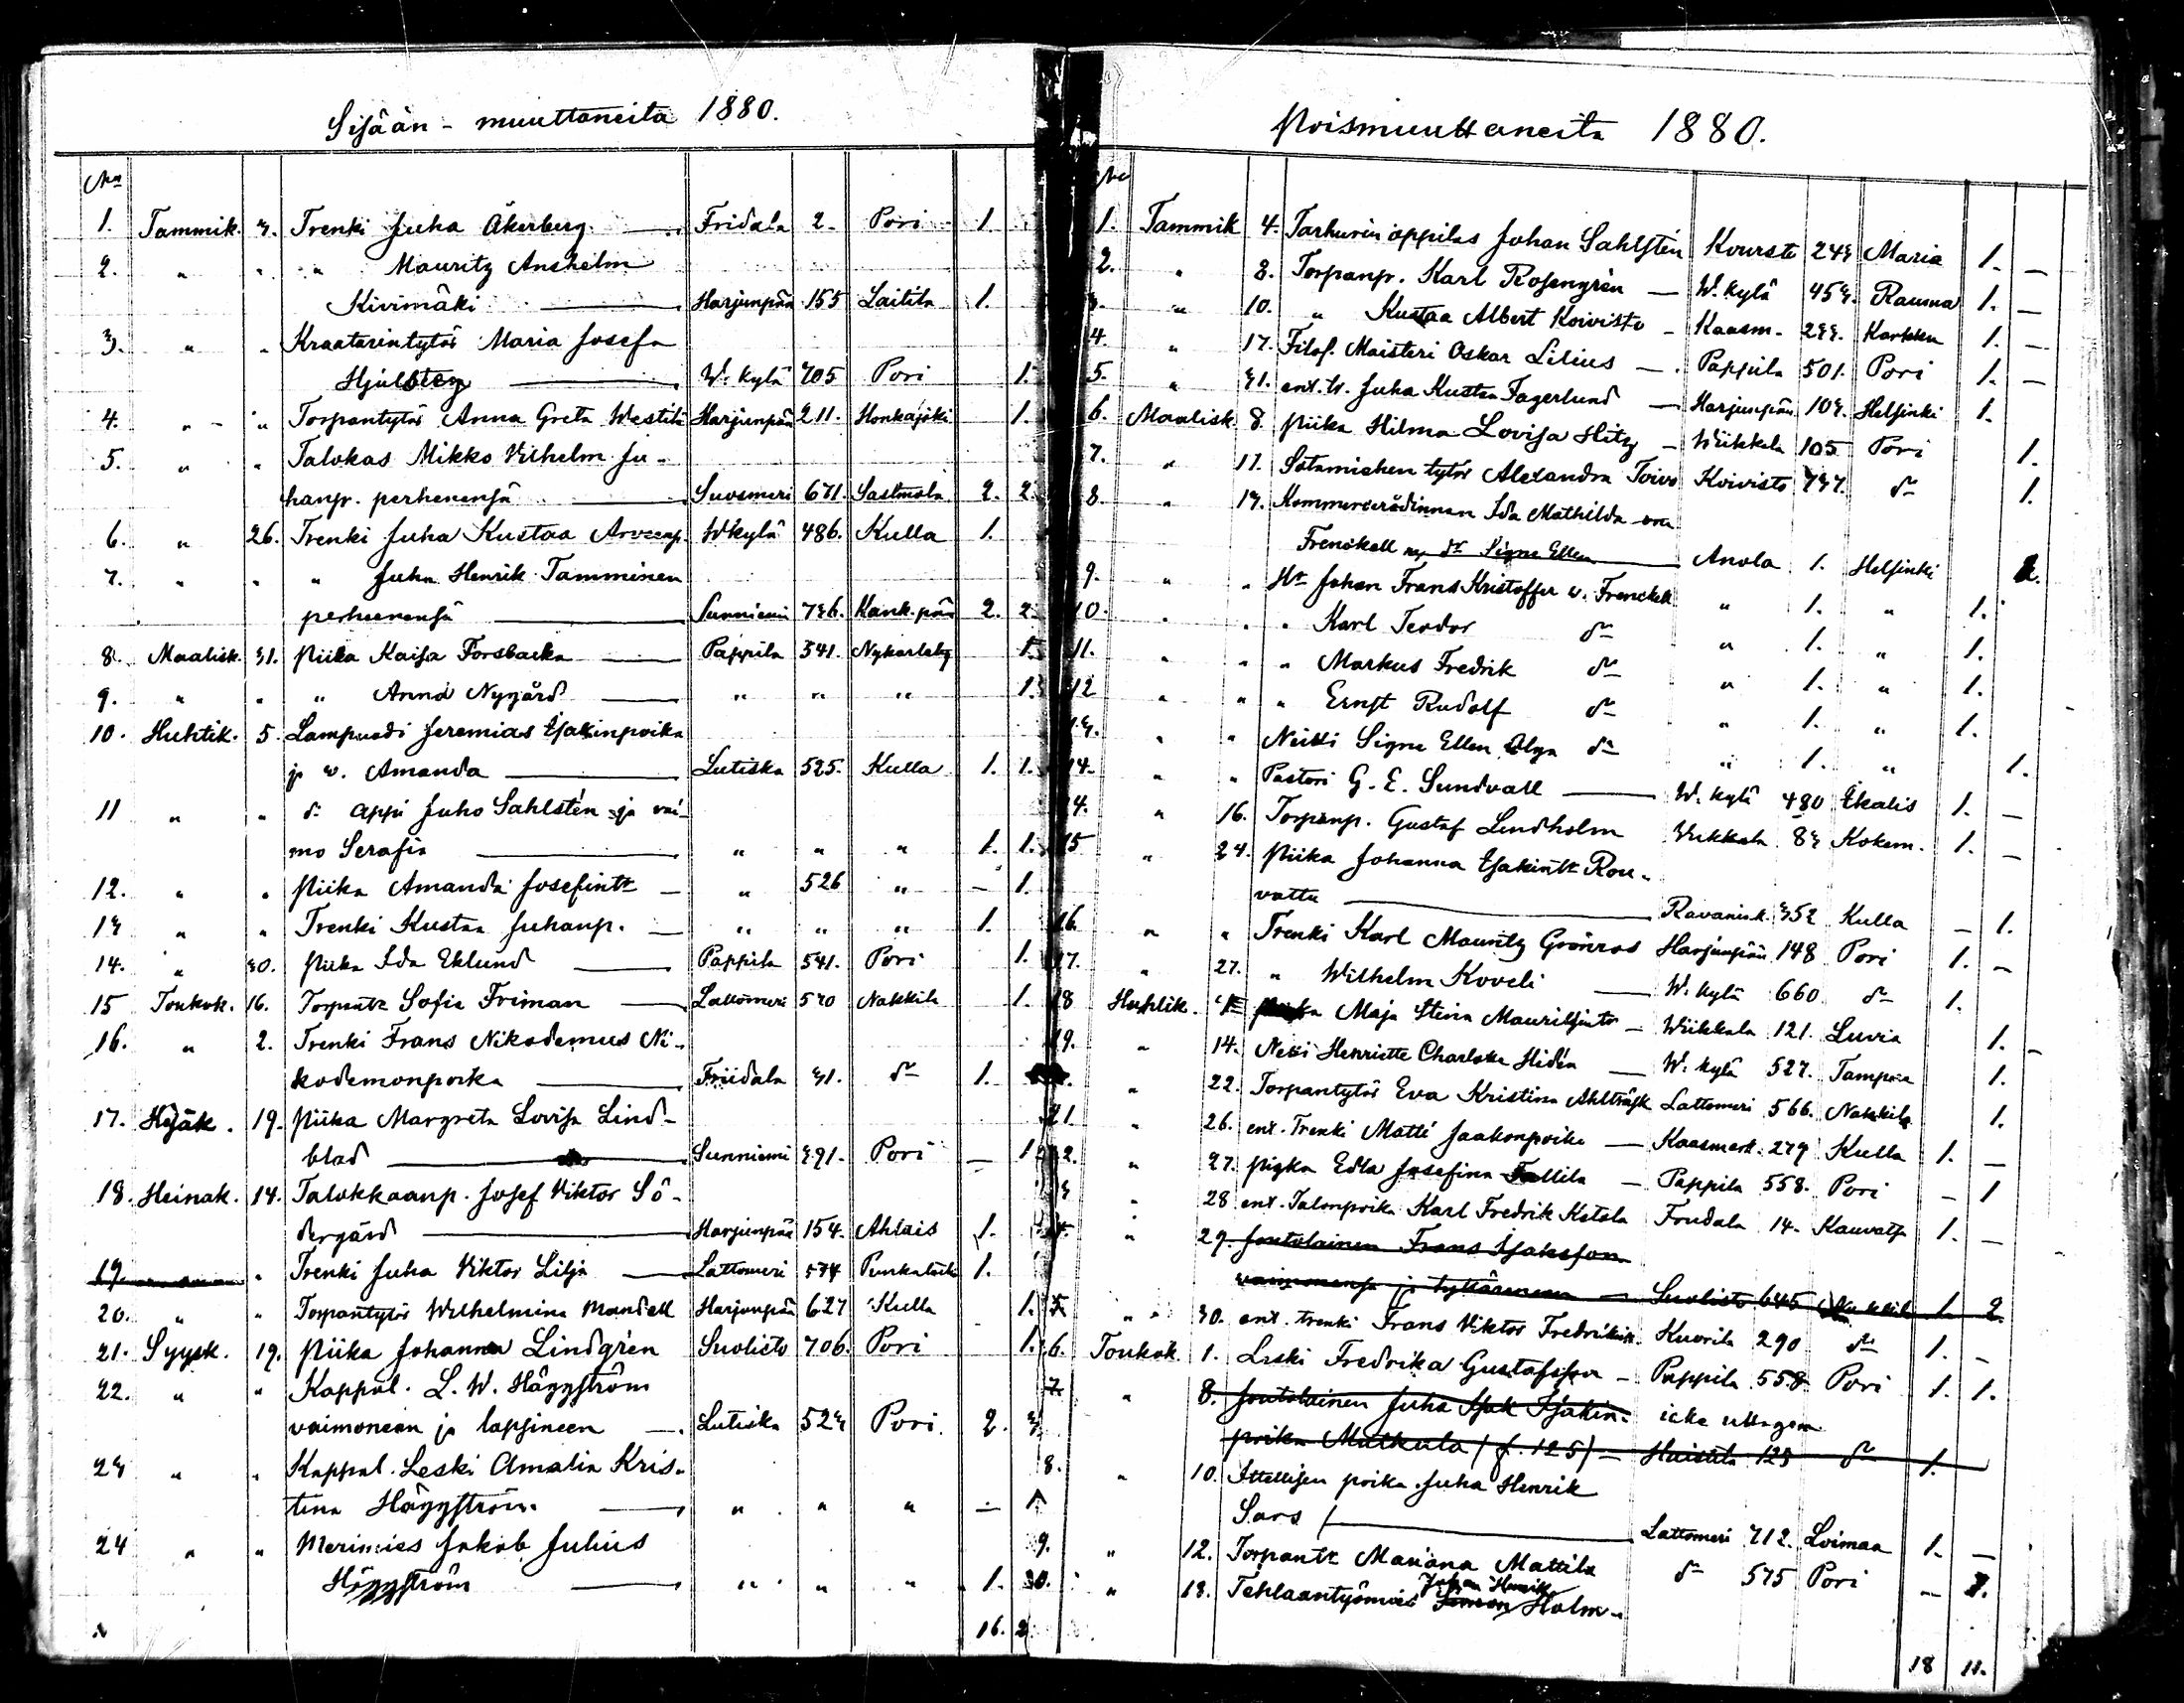 Sisään-muuttaneita 1880.
No
1. Tammik. 3. Trenki Juha Åkerberg Fridala 2. Pori 1.
2. " " " Mauritz Anshelm
Kivimäki Harjunpää 155 Laitila 1.
3. " " Kraatarintytär Maria Josefa
W. kylä 705 Pori 1.
4. " " Torpantytär Anna Greta Harjunpää 211. Honkajoki 1.
5. " " Talokas Mikko Vilhelm Ju-
hanp. perhenensä Suosmeri 671. Sastmola 2. 2
6. " 26. Trenki Juha Kustaa W kylä 486. Kulla 1.
7. " " " Juha Henrik Tamminen
perheenensä Sunniemi 736. Kank.pää 2. 2
8. Maalisk. 31. Piika Kaisa Forsbacka Pappila 541. Nykarleby 1.
9. " " " Anna Nygård " " " 1.
10. Huhtik. 5. Lampuodi Jeremias Isakinpoika
ja v. Amanda Lutiska 525. Kulla 1. 1.
11 " " d:o appi Juho Sahlstén ja vai-
mo Serafia " " " 1. 1.
12. " " Piika Amanda Josefintr " 526 " - 1.
13 " " Trenki Kustaa Juhanp. " " " 1.
14. " 30. Piika Ida Eklund Pappila 541. Pori 1.
15 Toukok. 16. Torpantr Sofia Friman Lattomeri 570 Nakkila 1.
16. " 2. Trenki Frans Nikodemus Ni-
kodemonpoika Friidala 31. do 1.
17. Kesäk. 19. Piika Margreta Lovisa Lind-
blad Sunniemi 391. Pori - 1
18. Heinäk. 14. Talokkaanp. Josef Viktor Sö-
dergård Harjunpää 154. Ahlais 1.
19. " Trenki Juha Viktor Lilja Lattomeri 574 Punkalaid. 1.
20. " " Torpantytär Wilhelmina Mandell Harjunpää 627 Kulla 1.
21. Syysk. 19. Piika Johanna Lindgrén Suolisto 706. Pori 1.
22. " " Kappal. L. W. Häggström
vaimoneen ja lapsineen Lutiska 523 Pori. 2. 3
23 " " Kappal. Leski Amalia Kris-
tina Häggström " " " - 1
24 " " Merimies Jakob Julius
Häggström " " " 1.
16. 2
Poismuuttaneita 1880.
No
1. Tammik 4. Tarhurin oppilas Johan Sahlstén Kvarsta 243 Maria 1. -
2. " 8. Torpanp. Karl Rosengrén W. kylä 453. Rauma 1. -
3. " 10. " Kustaa Albert Koivisto Kaasm. 233. Karkku 1. -
4. " 17. Filos. Maisteri Oskar Lilius Pappila 501. Pori 1. -
5. " 31. ent. tr. Juha Kustaa Fagerlund Harjunpää 103. Helsinki 1.
6. Maalisk. 8. Piika Hilma Lovisa Hitz Wiikkala 105 Pori 1.
7. " 11. Sotamiehen tytär Alexandra Toivo Koivisto 737. do 1.
8. " 17. Kommerserådinnan Ida Mathilda von
Frenckell Anola 1. Helsinki 1.
9. " " Hr Johan Frans Kristoffer v. Frenckell " 1. " 1.
10. " " " Karl Teodor do " 1. " 1.
11. " " " Markus Fredrik do " 1. " 1.
12 " " " Ernst Rudolf do " 1. " 1.
13. " " Neiti Signe Ellen Olga do " 1. " 1.
14. " " Pastori G. E. Sundvall W. kylä 480 Ikalis 1. -
14. " 16. Torpanp. Gustaf Lindholm Wiikkala 83 Kokem. 1. -
15 " 24. Piika Johanna Isakintr Rou-
vattu Ravanik. 352 Kulla - 1.
16. " " Trenki Karl Mauritz Grönros Harjunpää 148 Pori 1. -
17. " 27. " Wilhelm Koveli W. kylä 660 do 1.
18 Huhtik. Piika Maja Stina Mauritsintr Wiikkala 121. Luvia 1. -
19. " 14. Neiti Henriette Charlotta Hidén W. kylä 527. Tampere 1.
" 22. Torpantytär Eva Kristina Ahlträsk Lattomeri 566. Nakkila 1.
21 " 26. ent. Trenki Matti Jaakonpoika Kaasmark. 279 Kulla 1. -
2. " 27. Pigka Edla Josefina Tallila Pappila 558. Pori - 1
3 " 28 ent. Talonpoika Karl Fredrik Ketola Friidala 14. Kauvatsa 1. -
4. " 29. Joutolainen Frans Isaksson
vaimonensa ja tyttärineen Suolisto 645 Nakkila 1. 2.
5 " 30. ent. trenki Frans Viktor Fredrikinp. Kuorila 290 do 1. -
6. Toukok. 1. Leski Fredrika Gustafsson Pappila 558 Pori 1. 1.
7. " 8. Joutolainen Juha Isak Isakin- icke uttagen
poika Matkala (f. 125) Haistila 125 do 1. -
8. " 10. Itsellisen poika Juha Henrik
Sars Lattomeri 712. Loimaa 1. -
9. " 12. Torpantr Mariana Mattila do 575 Pori - 1.
30. " 18. Tehtaantyömies Johan Henrik Holm-
18 11.